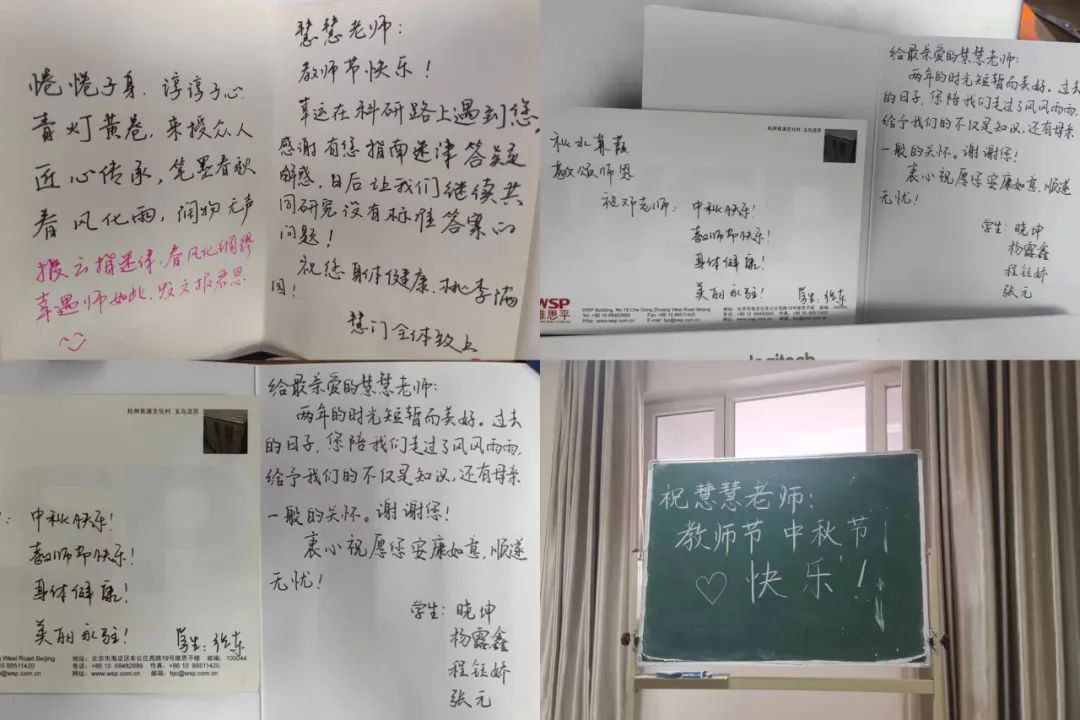 惓惓于身，谆谆于心
青灯黄卷，来授众人
匠心传承，笔墨春秋
春风化雨，润物无声
拨云指迷津，春风化绸缪
幸遇师如此，发文报君恩
慧慧老师：
教师节快乐！
幸运在科研路上遇到您，
感谢有您指南迷津答疑
解惑，日后让我们继续共
同研究没有标准答案的
问题！
祝您身体健康、桃李满
园！
慧门全体致上
杭州良渚文化村 玉鸟流苏
秋水蒹葭
敬颂师恩
祝邓老师：中秋快乐！
教师节快乐！
身体健康！
美丽永驻！
学生：徐东
WSP
维思平
WSP Building, No.19 Che Gong Zhuang West Road Beijing
Tel +86 10 68482689 Fax +86 10 88511420
Http://www.wsp.com.cn
地址：北京市海淀区车公庄西路19号维思平楼 邮编：100044
电话：+86 10 68482689 传真：+86 10 88511420
网址：www.wsp.com.cn 邮箱：bjo@wsp.com.cn
给最亲爱的慧慧老师：
两年的时光短暂而美好。过去
的日子，您陪我们走过了风风雨雨，
给予我们的不仅是知识，还有母亲
一般的关怀。谢谢您！
衷心祝愿您安康如意，顺遂
无忧！
学生：晓坤
杨露鑫
程钰娇
张元
logitech
杭州良渚文化村 玉鸟流苏
：中秋快乐！
教师节快乐！
身体健康！
美丽永驻！
学生：徐东
West Road Beijing
10 88511420
@wsp.com.cn
地址：北京市海淀区车公庄西路19号维思平楼 邮编：100044
电话：+86 10 68482689 传真：+86 10 88511420
网址：www.wsp.com.cn 邮箱：bjo@wsp.com.cn
给最亲爱的慧慧老师：
两年的时光短暂而美好。过去
的日子，您陪我们走过了风风雨雨，
给予我们的不仅是知识，还有母亲
一般的关怀。谢谢您！
衷心祝愿您安康如意，顺遂
无忧！
学生：晓坤
杨露鑫
程钰娇
张元
祝慧慧老师：
教师节 中秋节
♡快乐！